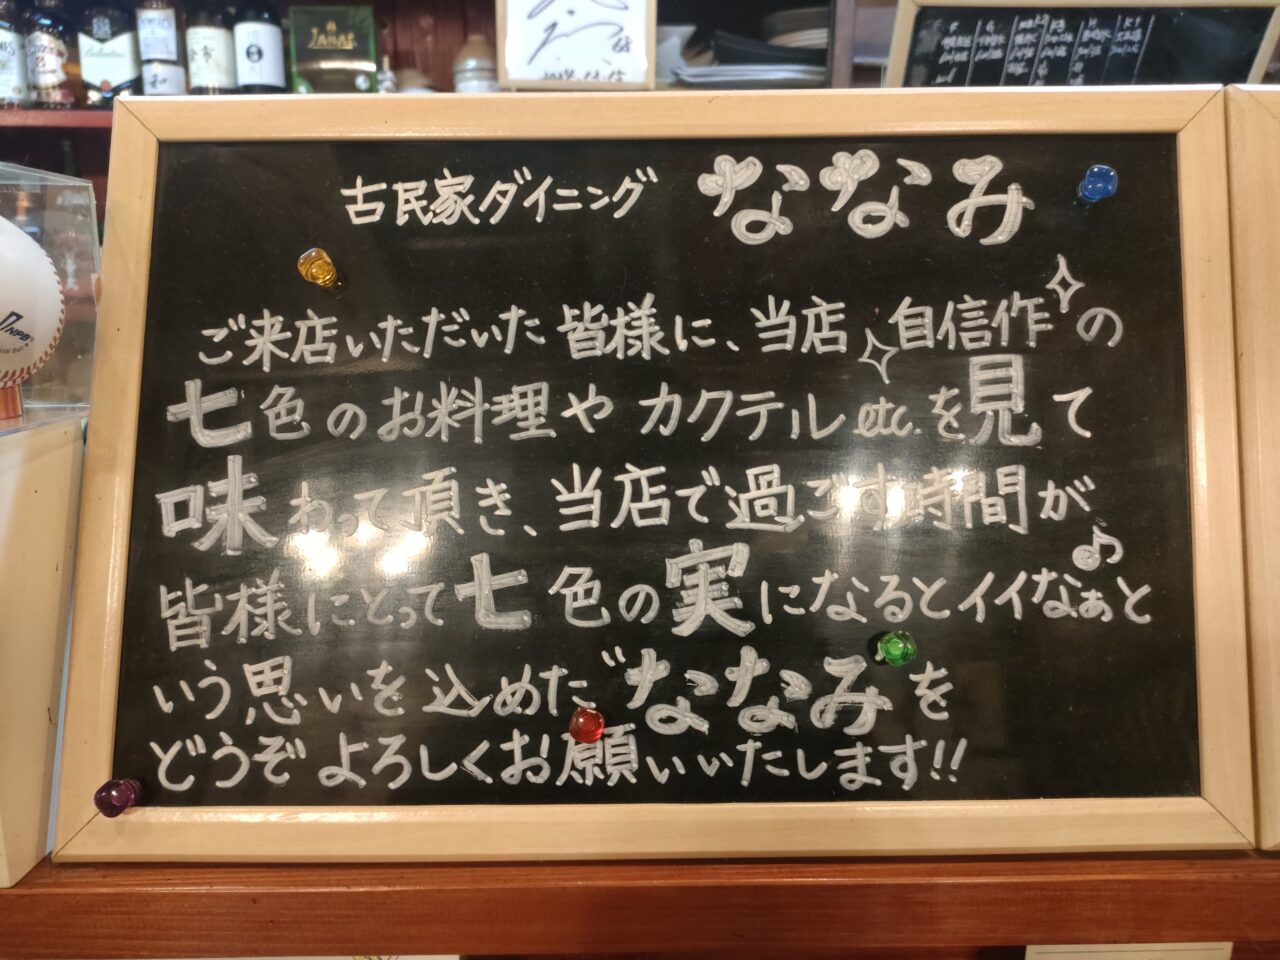 古民家ダイニング ななみ
ご来店いただいた皆様に、当店自信作の
七色のお料理やカクテルetc.を見て
味わって頂き、当店で過ごす時間が
皆様にとって七色の実になるとイイなぁと
いう思いを込めた“ななみ”を
どうぞよろしくお願いいたします!!
NPB